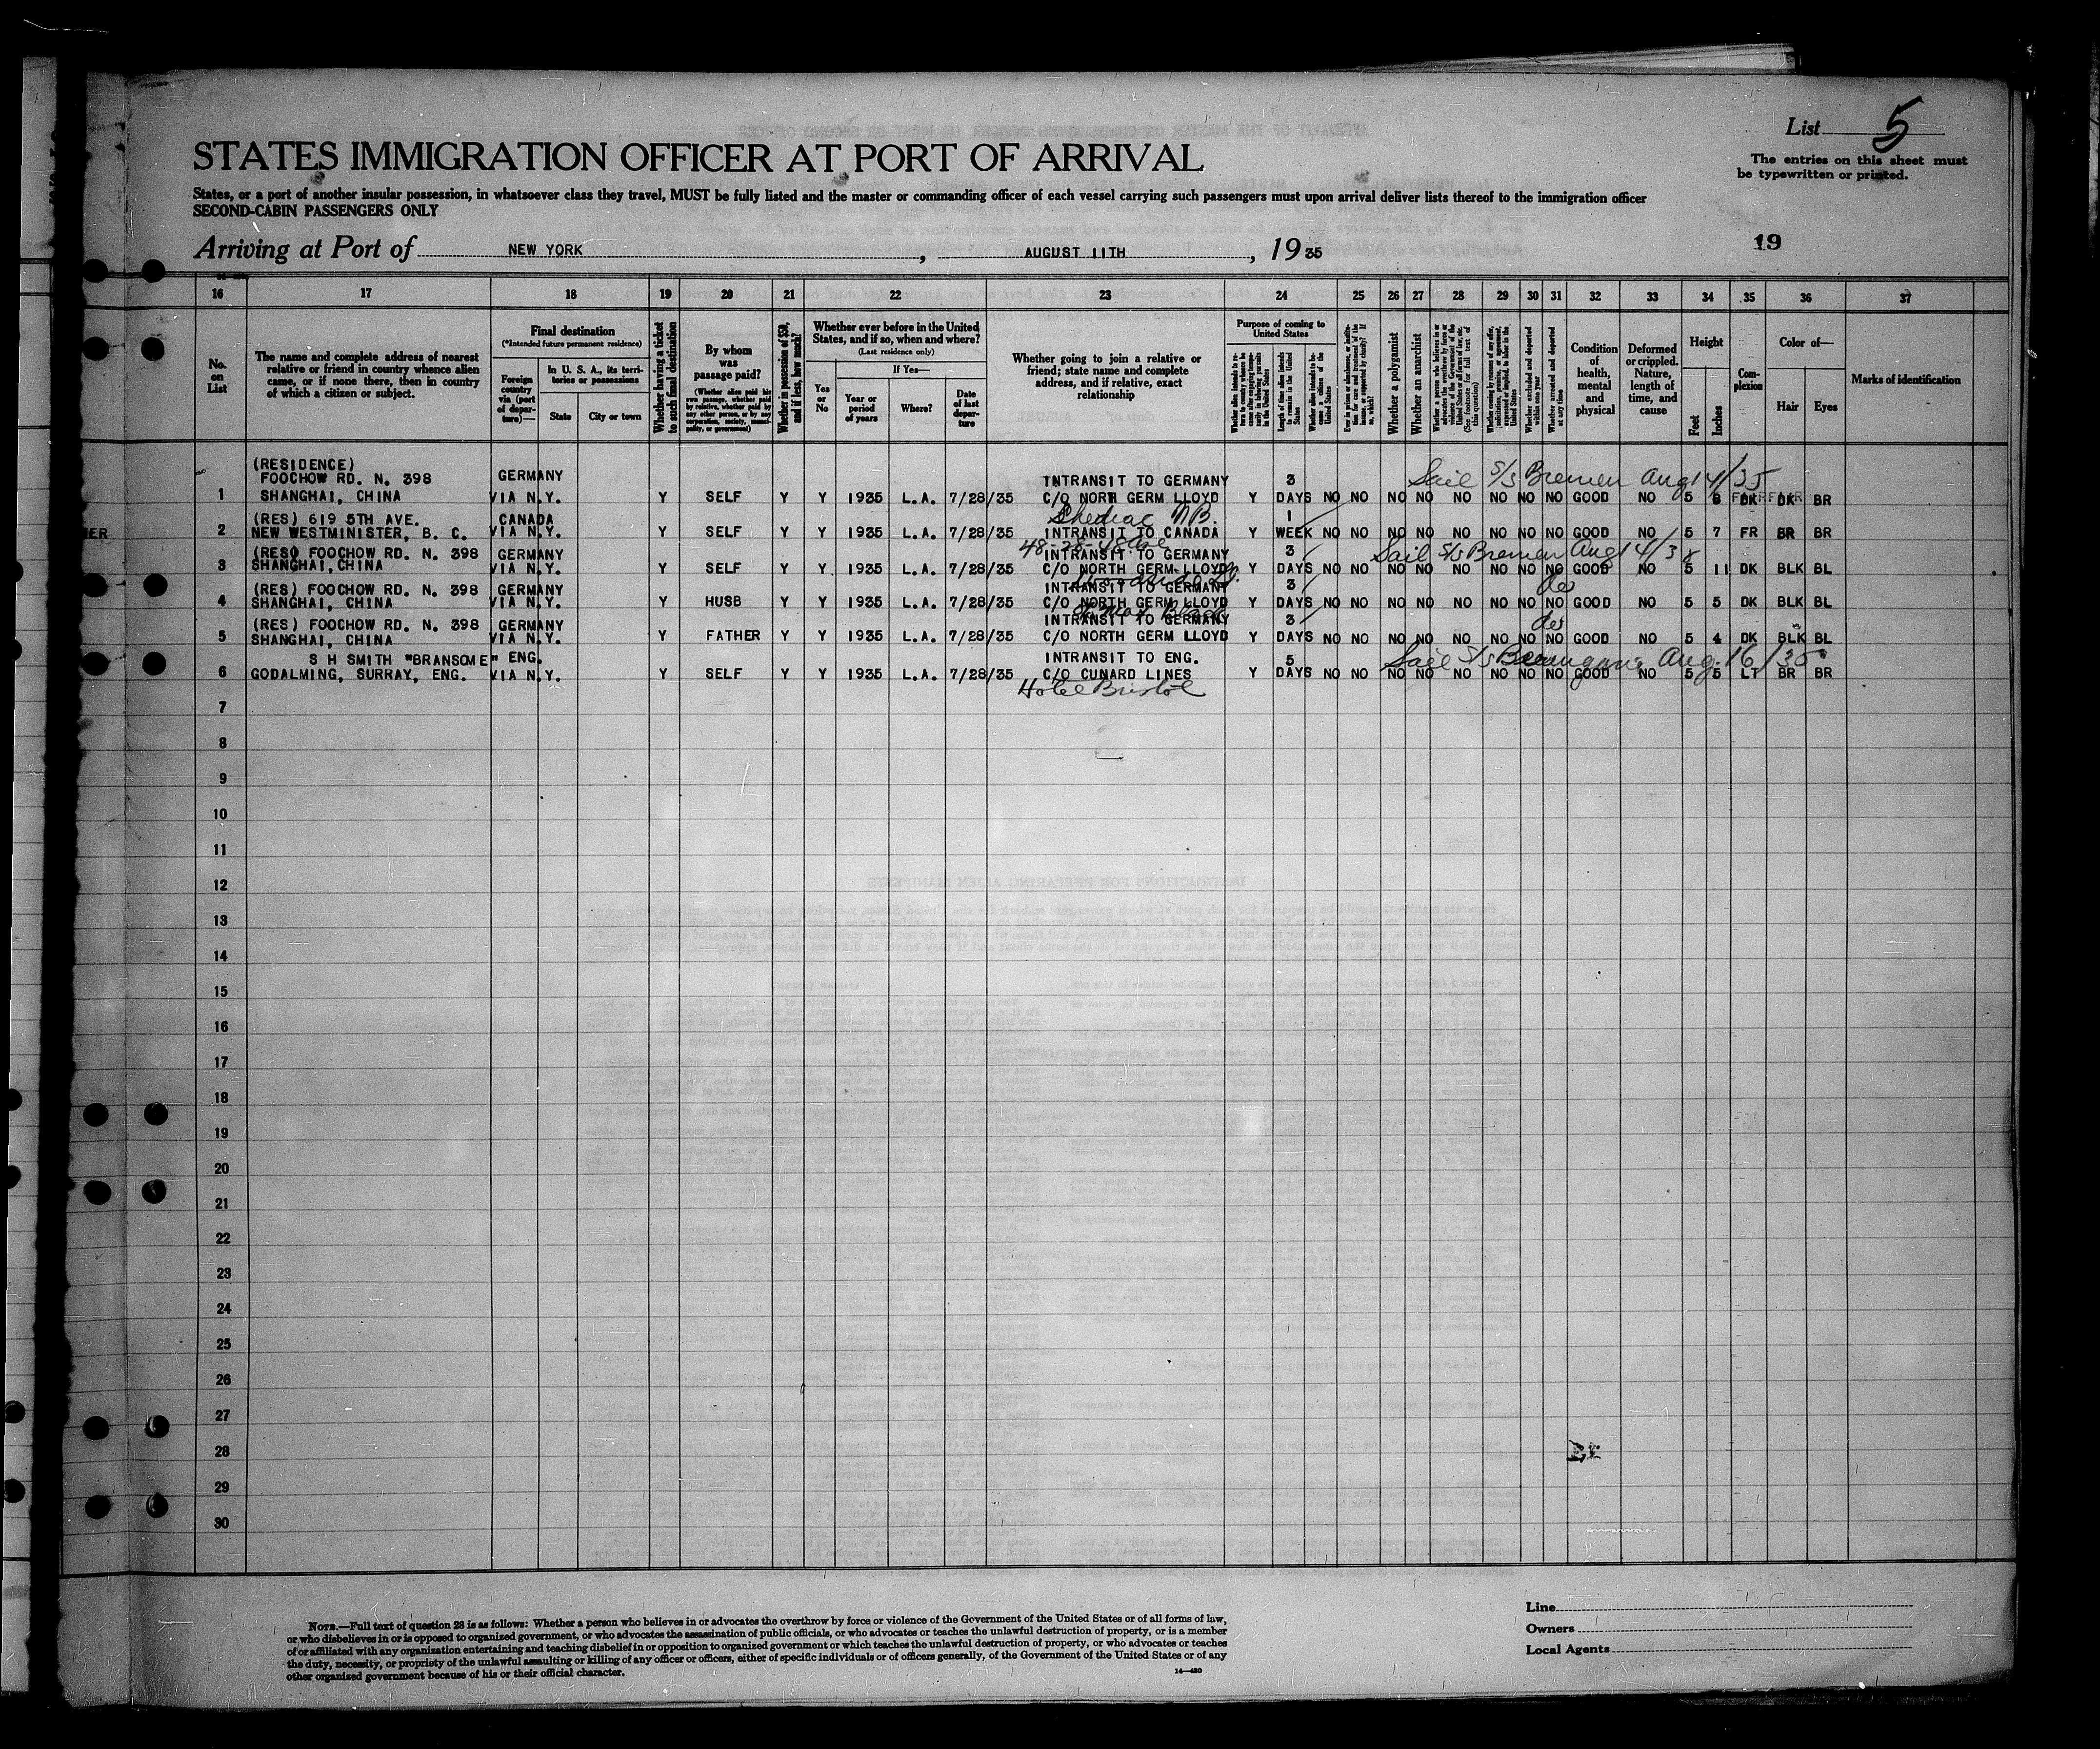 List 5
The entries on this sheet must
be typewritten or printed.
STATES IMMIGRATION OFFICER AT PORT OF ARRIVAL
States, or a port of another insular possession, in whatsoever class they travel, MUST be fully listed and the master or commanding officer of each vessel carrying such passengers must upon arrival deliver lists thereof to the immigration officer
SECOND-CABIN PASSENGERS ONLY
Arriving at Port of NEW YORK, AUGUST 11TH, 1935
19
16 17 18 19 20 21 22 23 24 25 26 27 28 29 30 31 32 33 34 35 36 37
No. on List
The name and complete address of nearest relative or friend in country whence alien came, or if none there, then in country of which a citizen or subject.
Final destination
(*Intended future permanent residence)
Foreign country via (port of departure)—
In U. S. A., its territories or possessions
State
City or town
Whether having a ticket to such final destination
By whom was passage paid?
(Whether alien paid his own passage, whether paid by relative, whether paid by any other person, or by any corporation, society, municipality, or government)
Whether in possession of $50, and if less, how much?
Whether ever before in the United States, and if so, when and where?
(Last residence only)
Yes or No
If Yes—
Year or period of years
Where?
Date of last departure
Whether going to join a relative or friend; state name and complete address, and if relative, exact relationship
Purpose of coming to United States
Length of time alien intends to remain in the United States
Whether alien intends to become a citizen of the United States
Whether a polygamist
Whether an anarchist
Whether excluded and deported within one year
Whether arrested and deported at any time
Condition of health, mental and physical
Deformed or crippled. Nature, length of time, and cause
Height
Feet
Inches
Complexion
Color of—
Hair
Eyes
Marks of identification
(RESIDENCE)
FOOCHOW RD. N. 398 GERMANY INTRANSIT TO GERMANY 3 Sail S/S Bremen Aug 14/35
1 SHANGHAI, CHINA VIA N.Y. Y SELF Y Y 1935 L.A. 7/28/35 C/O NORTH GERM LLOYD Y DAYS NO NO NO NO NO NO NO NO GOOD NO 5 DK DK BR
(RES) 619 5TH AVE. CANADA Shediac N.B. 1
2 NEW WESTMINISTER, B. C. VIA N.Y. Y SELF Y Y 1935 L.A. 7/28/35 INTRANSIT TO CANADA Y WEEK NO NO NO NO NO NO NO NO GOOD NO 5 7 FR BR BR
(RES) FOOCHOW RD. N. 398 GERMANY INTRANSIT TO GERMANY 3 Sail S/S Bremen Aug 14/35
3 SHANGHAI, CHINA VIA N.Y. Y SELF Y Y 1935 L.A. 7/28/35 C/O NORTH GERM LLOYD Y DAYS NO NO NO NO NO NO NO NO GOOD NO 5 11 DK BLK BL
(RES) FOOCHOW RD. N. 398 GERMANY INTRANSIT TO GERMANY 3 do
4 SHANGHAI, CHINA VIA N.Y. Y HUSB Y Y 1935 L.A. 7/28/35 C/O NORTH GERM LLOYD Y DAYS NO NO NO NO NO NO NO NO GOOD NO 5 5 DK BLK BL
(RES) FOOCHOW RD. N. 398 GERMANY INTRANSIT TO GERMANY 3 do
5 SHANGHAI, CHINA VIA N.Y. Y FATHER Y Y 1935 L.A. 7/28/35 C/O NORTH GERM LLOYD Y DAYS NO NO NO NO NO NO NO NO GOOD NO 5 4 DK BLK BL
S H SMITH "BRANSOME" ENG. INTRANSIT TO ENG. 5 Sail S/S Aug. 16/35
6 GODALMING, SURRAY, ENG. VIA N.Y. Y SELF Y Y 1935 L.A. 7/28/35 C/O CUNARD LINES Y DAYS NO NO NO NO NO NO NO NO GOOD NO 5 5 LT BR BR
Hotel Bristol
7
8
9
10
11
12
13
14
15
16
17
18
19
20
21
22
23
24
25
26
27
28
29
30
NOTE.—Full text of question 28 is as follows: Whether a person who believes in or advocates the overthrow by force or violence of the Government of the United States or of all forms of law,
or who disbelieves in or is opposed to organized government, or who advocates the assassination of public officials, or who advocates or teaches the unlawful destruction of property, or is a member
of or affiliated with any organization entertaining and teaching disbelief in or opposition to organized government or which teaches the unlawful destruction of property, or who advocates or teaches
the duty, necessity, or propriety of the unlawful assaulting or killing of any officer or officers, either of specific individuals or of officers generally, of the Government of the United States or of any
other organized government because of his or their official character.
14—480
Line
Owners
Local Agents